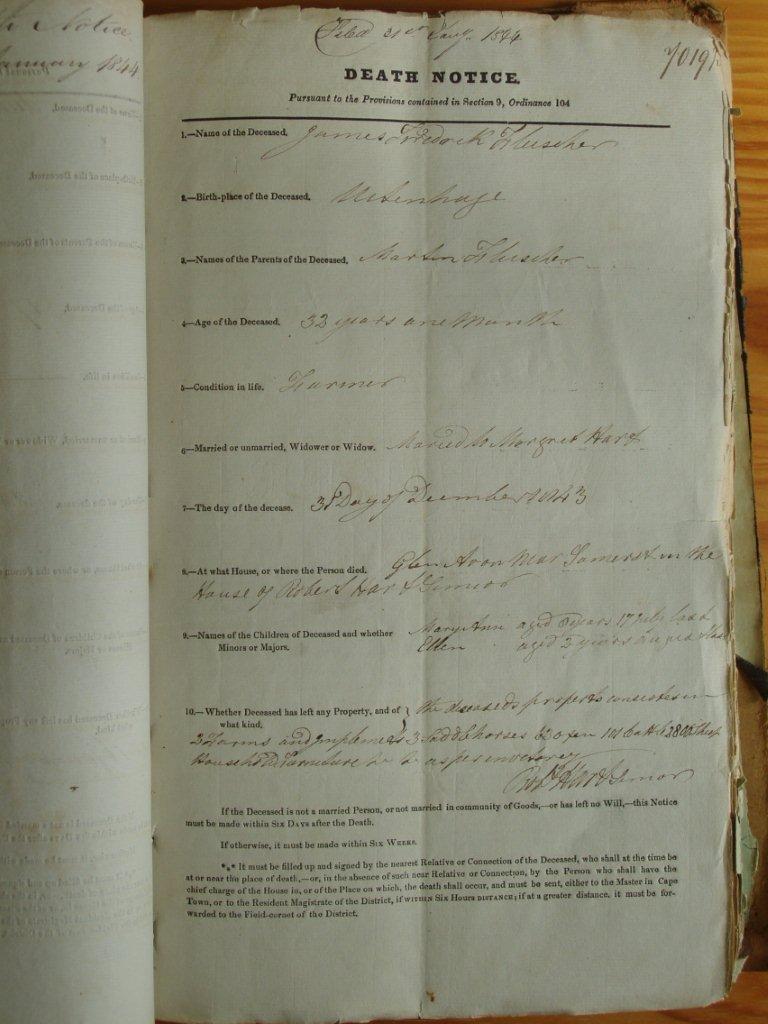 Filed 31st Jany. 1844
7019/
DEATH NOTICE.
Pursuant to the Provisions contained in Section 9, Ordinance 104
1.—Name of the Deceased, James Fredrick Fleischer
2.—Birth-place of the Deceased, Uitenhage
3.—Names of the Parents of the Deceased, Martin Fleischer
4—Age of the Deceased. 32 years one Month
5—Condition in life. Farmer
6—Married or unmarried, Widower or Widow. Maried to Margret Hart
7—The day of the decease. 31 Day of December 1843
8.—At what House, or where the Person died. Glen Avon Near Somerset in the
House of Robert Hart Senior
9.—Names of the Children of Deceased and whether Mary Ann aged years 17 last
Minors or Majors. Ellen aged 2 years
10.—Whether Deceased has left any Property, and of the deceaseds property consistes in
what kind.
2 Farms and Implements 3 Saddle horses Oxen 101 Cattle 2800 Sheep
Household Furniture &c &c as per inventory
Robt Hart Senior
If the Deceased is not a married Person, or not married in community of Goods,—or has left no Will,—this Notice
must be made within Six Days after the Death.
If otherwise, it must be made within Six Weeks.
*⁎* It must be filled up and signed by the nearest Relative or Connection of the Deceased, who shall at the time be
at or near the place of death,—or, in the absence of such near Relative or Connection, by the Person who shall have the
chief charge of the House in, or of the Place on which, the death shall occur, and must be sent, either to the Master in Cape
Town, or to the Resident Magistrate of the District, if within Six Hours distance; if at a greater distance, it must be for-
warded to the Field-cornet of the District.